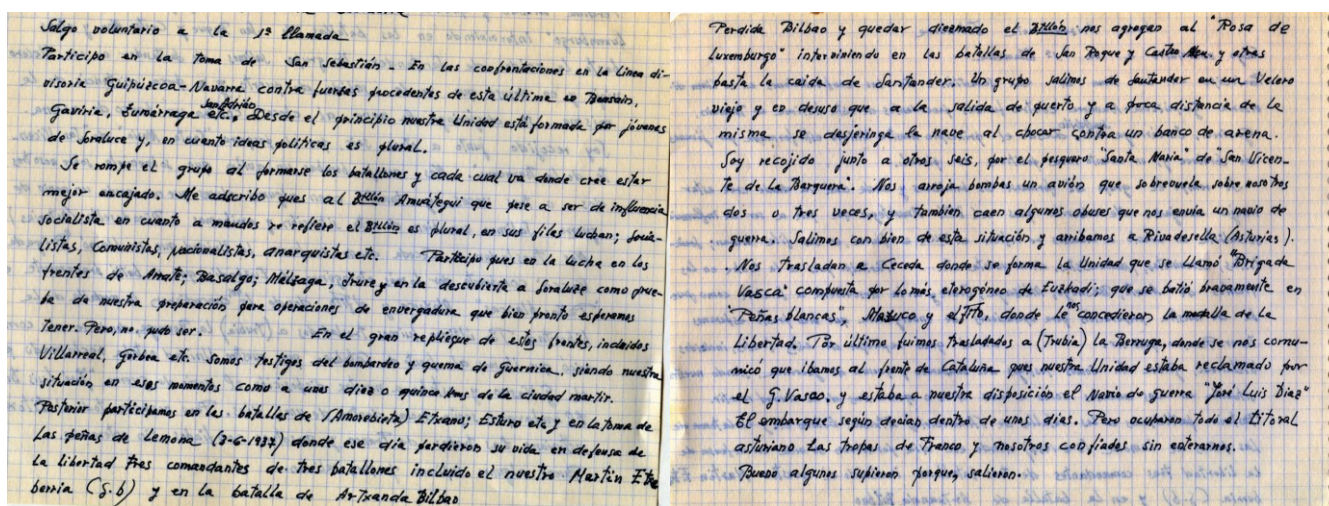 Salgo voluntario a la 1ª llamada
Participo en la toma de San Sebastián. En las confrontaciones en la Linea di-
visoria Guipúzcoa-Navarra contra fuerzas procedentes de esta última en Beasain,
Gaviria, Zumárraga San Adrián etc; Desde el principio nuestra Unidad está formada por jóvenes
de Soraluce y, en cuanto ideas políticas es plural.
Se rompe el grupo al formarse los batallones y cada cual va donde cree estar
mejor encajado. Me adscribo pues al Btllón Amuategui que pese a ser de influencia
socialista en cuanto a mandos se refiere el Btllón es plural, en sus filas luchan; socia-
listas, comunistas, nacionalistas, anarquistas etc. Participo pues en la lucha en los
frentes de Arrate; Basalgo; Mélzaga, Irure y en la descubierta a Soraluze como prue-
ba de nuestra preparación para operaciones de envergadura que bien pronto esperamos
tener. Pero, no pudo ser. En el gran repliegue de estos frentes, incluidos
Villarreal, Gorbea etc. somos testigos del bombardeo y quema de Guernica, siendo nuestra
situación en esos momentos como a unos diez o quince kms de la ciudad martir.
Posterior participamos en las batallas de (Amorebieta) Etxano; Esturo etc y en la toma de
Las peñas de Lemona (3-6-1937) donde ese día perdieron su vida en defensa de
la libertad tres comandantes de tres batallones incluido el nuestro Martín Etxe
berria (g.b) y en la batalla de Artxanda Bilbao
Perdida Bilbao y quedar diezmado el Btllón nos agregan al "Rosa de
Luxemburgo" interviniendo en las batallas de San Roque y Castro y otras
hasta la caida de Santander. Un grupo salimos de Santander en un Velero
viejo y en desuso que a la salida de puerto y a poca distancia de la
misma se desjeringa la nave al chocar contra un banco de arena.
Soy recojido junto a otros seis, por el pesquero "Santa Maria" de "San Vicen-
te de La Barquera". Nos arroja bombas un avión que sobrevuela sobre nosotros
dos o tres veces, y tambien caen algunos obuses que nos envia un navio de
guerra. Salimos con bien de esta situación y arribamos a Rivadesella (Asturias).
Nos trasladan a Ceceda donde se forma la Unidad que se llamó "Brigada
Vasca" compuesta por lo más eterogéneo de Euzkadi; que se batió bravamente en
"Peñas blancas", Mazuco y el Fito, donde le nos concedieron la medalla de la
Libertad. Por último fuimos trasladados a (Trubia) la Berruga, donde se nos comu-
nicó que ibamos al frente de Cataluña pues nuestra Unidad estaba reclamado por
el G. Vasco, y estaba a nuestra disposición el Navio de guerra "José Luis Diez"
El embarque según decian dentro de unos dias. Pero ocuparon todo el Litoral
asturiano las tropas de Franco y nosotros confiados sin enterarnos.
Bueno algunos supieron porque, salieron.